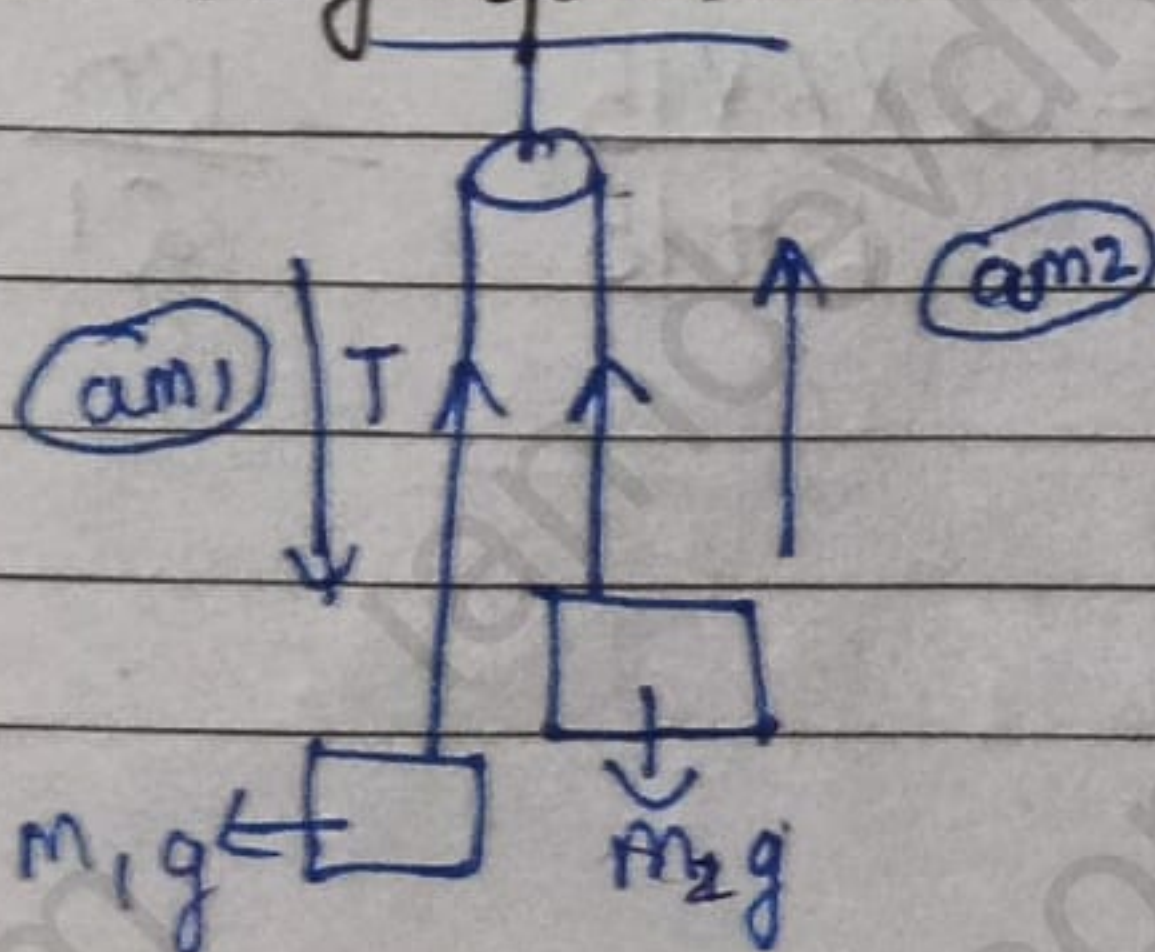 am2
am1
T
m1g
m2g